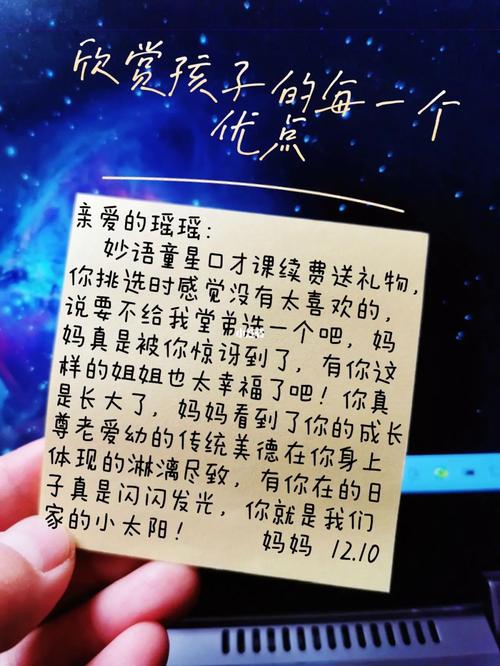 欣赏孩子的每一个
优点
亲爱的瑶瑶:
妙语童星口才课续费送礼物,
你挑选时感觉没有太喜欢的,
说要不给我堂弟选一个吧,妈
妈真是被你惊讶到了,有你这
样的姐姐也太幸福了吧!你真
是长大了,妈妈看到了你的成长
尊老爱幼的传统美德在你身上
体现的淋漓尽致,有你在的日
子真是闪闪发光,你就是我们
家的小太阳!
妈妈 12.10